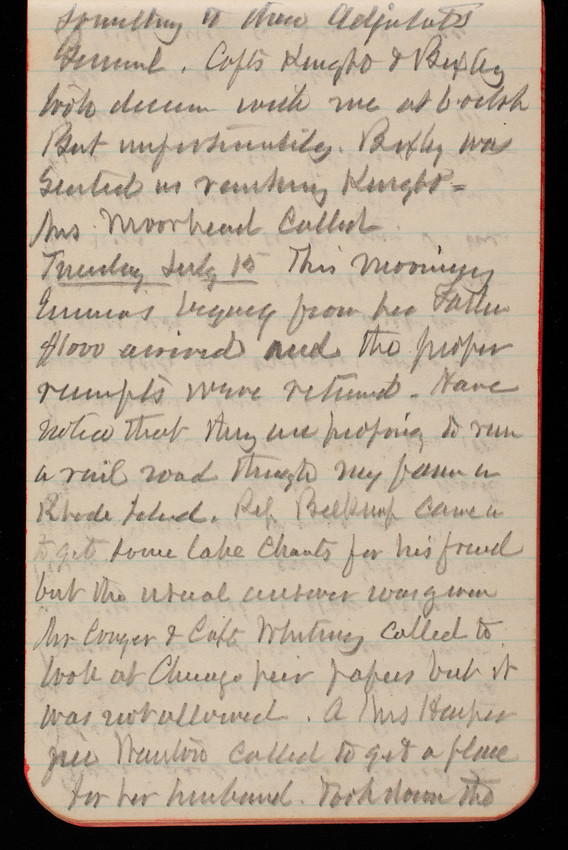 something to their Adjutants
General. Capts Knight & Bixby
took dinner with me at 6 oclock
But unfortunately. Bixby was
Seated as ranking Knight =
Mrs. Moorhead Called
Tuesday July 15 This morning
Emma's legacy from her Father
$1000 arrived and the proper
receipts were returned. Have
notice that they are proposing to run
a rail road through my farm in
Rhode Island. Rep. Belknap came in
to get some lake Charts for his friend
but the usual answer was given
Mr Conger & Capt Whitney called to
look at Chicago pier papers but it
was not allowed. A Mrs Harper
nee called to get a place
for her husband. Took down the